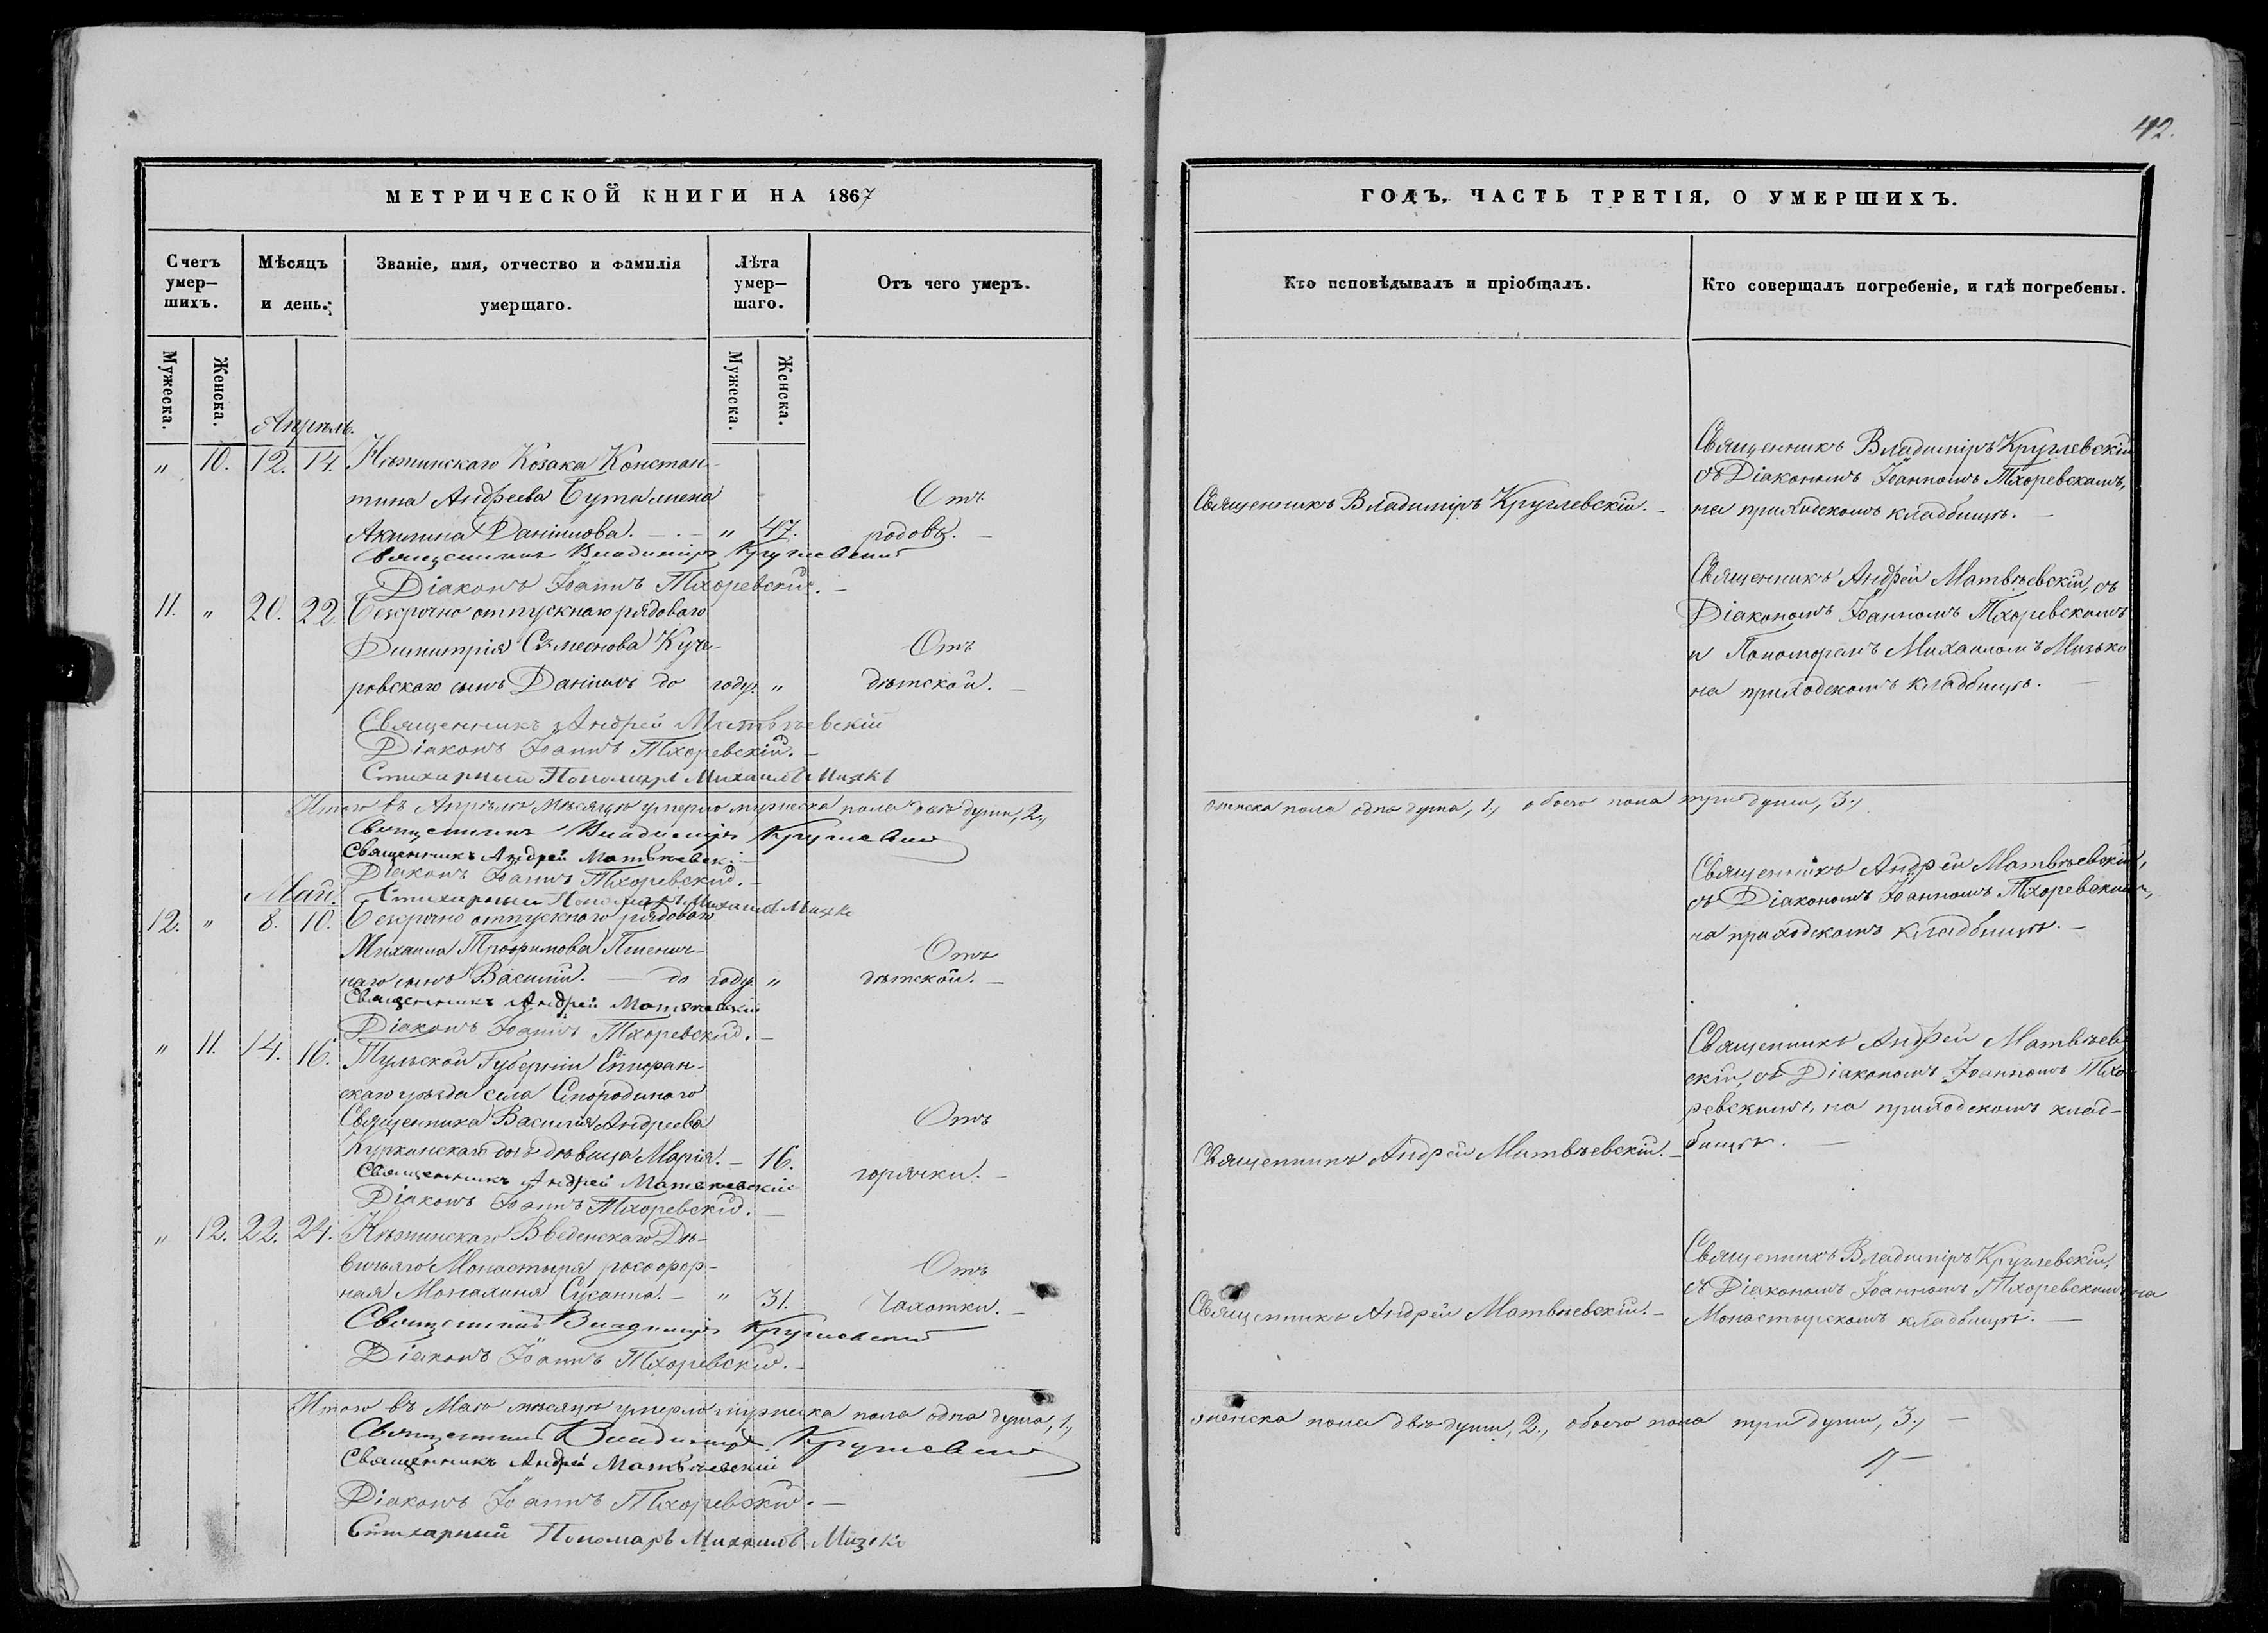 42.
МЕТРИЧЕСКОЙ КНИГИ НА 1867
ГОДЪ, ЧАСТЬ ТРЕТІЯ, О УМЕРШИХЪ.
Счетъ умер–шихъ.
Мѣсяцъ и день.
Званіе, имя, отчество и фамилія умершаго.
Лѣта умер–шаго.
Отъ чего умеръ.
Кто исповѣдывалъ и пріобщалъ.
Кто совершалъ погребеніе, и гдѣ погребены.
Мужеска.
Женска.
Мужеска.
Женска.
Апрѣль.
" 10. 12. 14. Нѣжинскаго Козака Констан-
тина Андреева Бута жена
Акилина Даніилова. — " 47.
Отъ
родовъ. —
Священникъ Владиміръ Круглевскій. —
Священникъ Владиміръ Круглевскій
съ Діакономъ Іоанномъ Тхоревскимъ,
на приходскомъ кладбищѣ. —
Священникъ Владиміръ Круглевскій
Діаконъ Іоаннъ Тхоревскій. —
11. " 20. 22. Безсрочно отпускного рядоваго
Димитрія Сѵмеонова Куче-
ровскаго сынъ Даніилъ до году. "
Отъ
дѣтской. —
Священникъ Андрей Матвѣевскій, съ
Діакономъ Іоанномъ Тхоревскимъ
и Пономоремъ Михаиломъ Мизько
на приходскомъ кладбищѣ. —
Священникъ Андрей Матвѣевскій
Діаконъ Іоаннъ Тхоревскій. —
Стихарный Пономарь Михаилъ Мизько
Итого въ Апрѣлѣ мѣсяцѣ умерло мужеска пола двѣ души, 2.,
женска пола одна душа, 1., обоего пола три души, 3.,
Священникъ Владиміръ Круглевскій
Священникъ Андрей Матвѣевск:
Діаконъ Іоаннъ Тхоревскій. —
Стихарный Пономарь Михаилъ Мизько
Май.
12. " 8. 10. Безсрочно отпускного рядоваго
Михаила Трофимова Пшенич-
наго сынъ Василій. — до году. "
Отъ
дѣтской. —
Священникъ Андрей Матвѣевскій,
съ Діакономъ Іоанномъ Тхоревскимъ,
на приходскомъ кладбищѣ. —
Священникъ Андрей Матвѣевскій
Діаконъ Іоаннъ Тхоревскій. —
" 11. 14. 16. Тульской Губерніи Епифан-
скаго уѣзда села
Священника Василія Андреева
Куркинскаго дочь дѣвица Марія. — 16.
Отъ
горячки. —
Священникъ Андрей Матвѣевскій. —
Священникъ Андрей Матвѣев-
скій, съ Діакономъ Іоанномъ Тхо-
ревскимъ, на приходскомъ клад-
бищѣ. —
Священникъ Андрей Матвѣевскій
Діаконъ Іоаннъ Тхоревскій. —
" 12. 22. 24. Нѣжинскаго Введенскаго Дѣ-
вичьяго Монастыря рясофор-
ная Монахиня Сусанна. — " 31.
Отъ
Чахотки. —
Священникъ Андрей Матвѣевскій. —
Священникъ Владиміръ Круглевскій,
съ Діакономъ Іоанномъ Тхоревскимъ на
Монастырскомъ кладбищѣ. —
Священникъ Владиміръ Круглевскій
Діаконъ Іоаннъ Тхоревскій. —
Итого въ Маѣ мѣсяцѣ умерло мужеска пола одна душа, 1.,
женска пола двѣ души, 2., обоего пола три души, 3., —
Священникъ Владиміръ Круглевскій
Священникъ Андрей Матвѣевскій
Діаконъ Іоаннъ Тхоревскій. —
Стихарный Пономарь Михаилъ Мизько